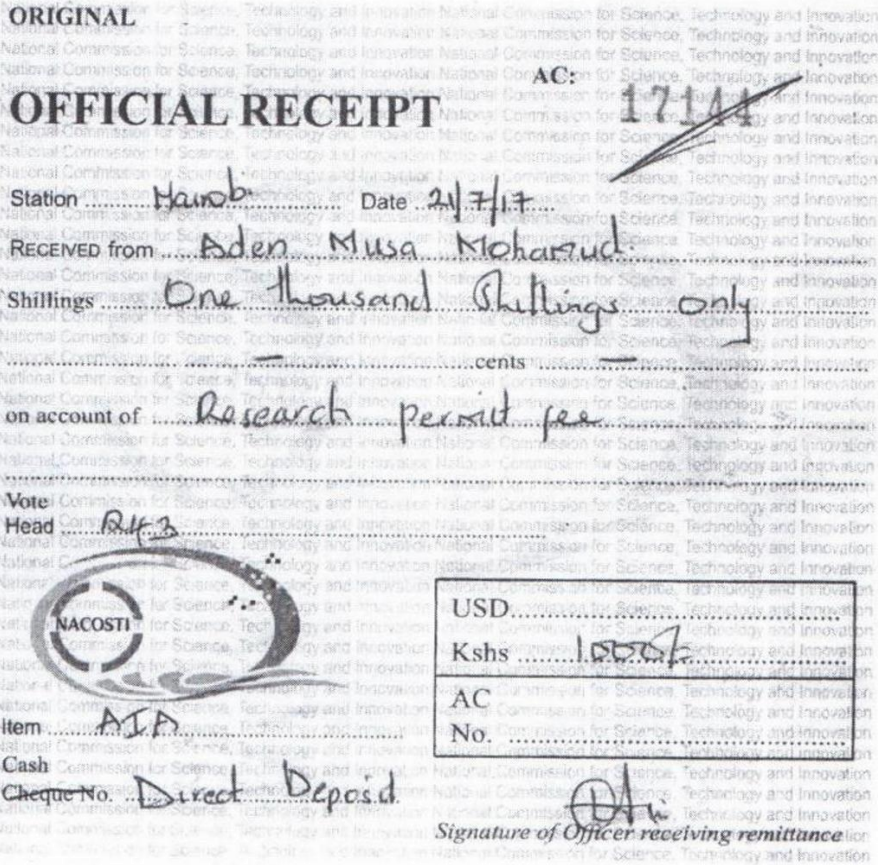 ORIGINAL
AC:
OFFICIAL RECEIPT 17144
Station Nairob Date 21/7/17
RECEIVED from Aden Musa Mohamud.
Shillings One thousand Shillings only
— cents —
on account of Research permit fee
Vote
Head R43
NACOSTI
USD
Kshs 1000/=
AC
No.
Item AIA
Cash
Cheque No. Direct Deposit
Signature of Officer receiving remittance
National Commission for Science, Technology and Innovation